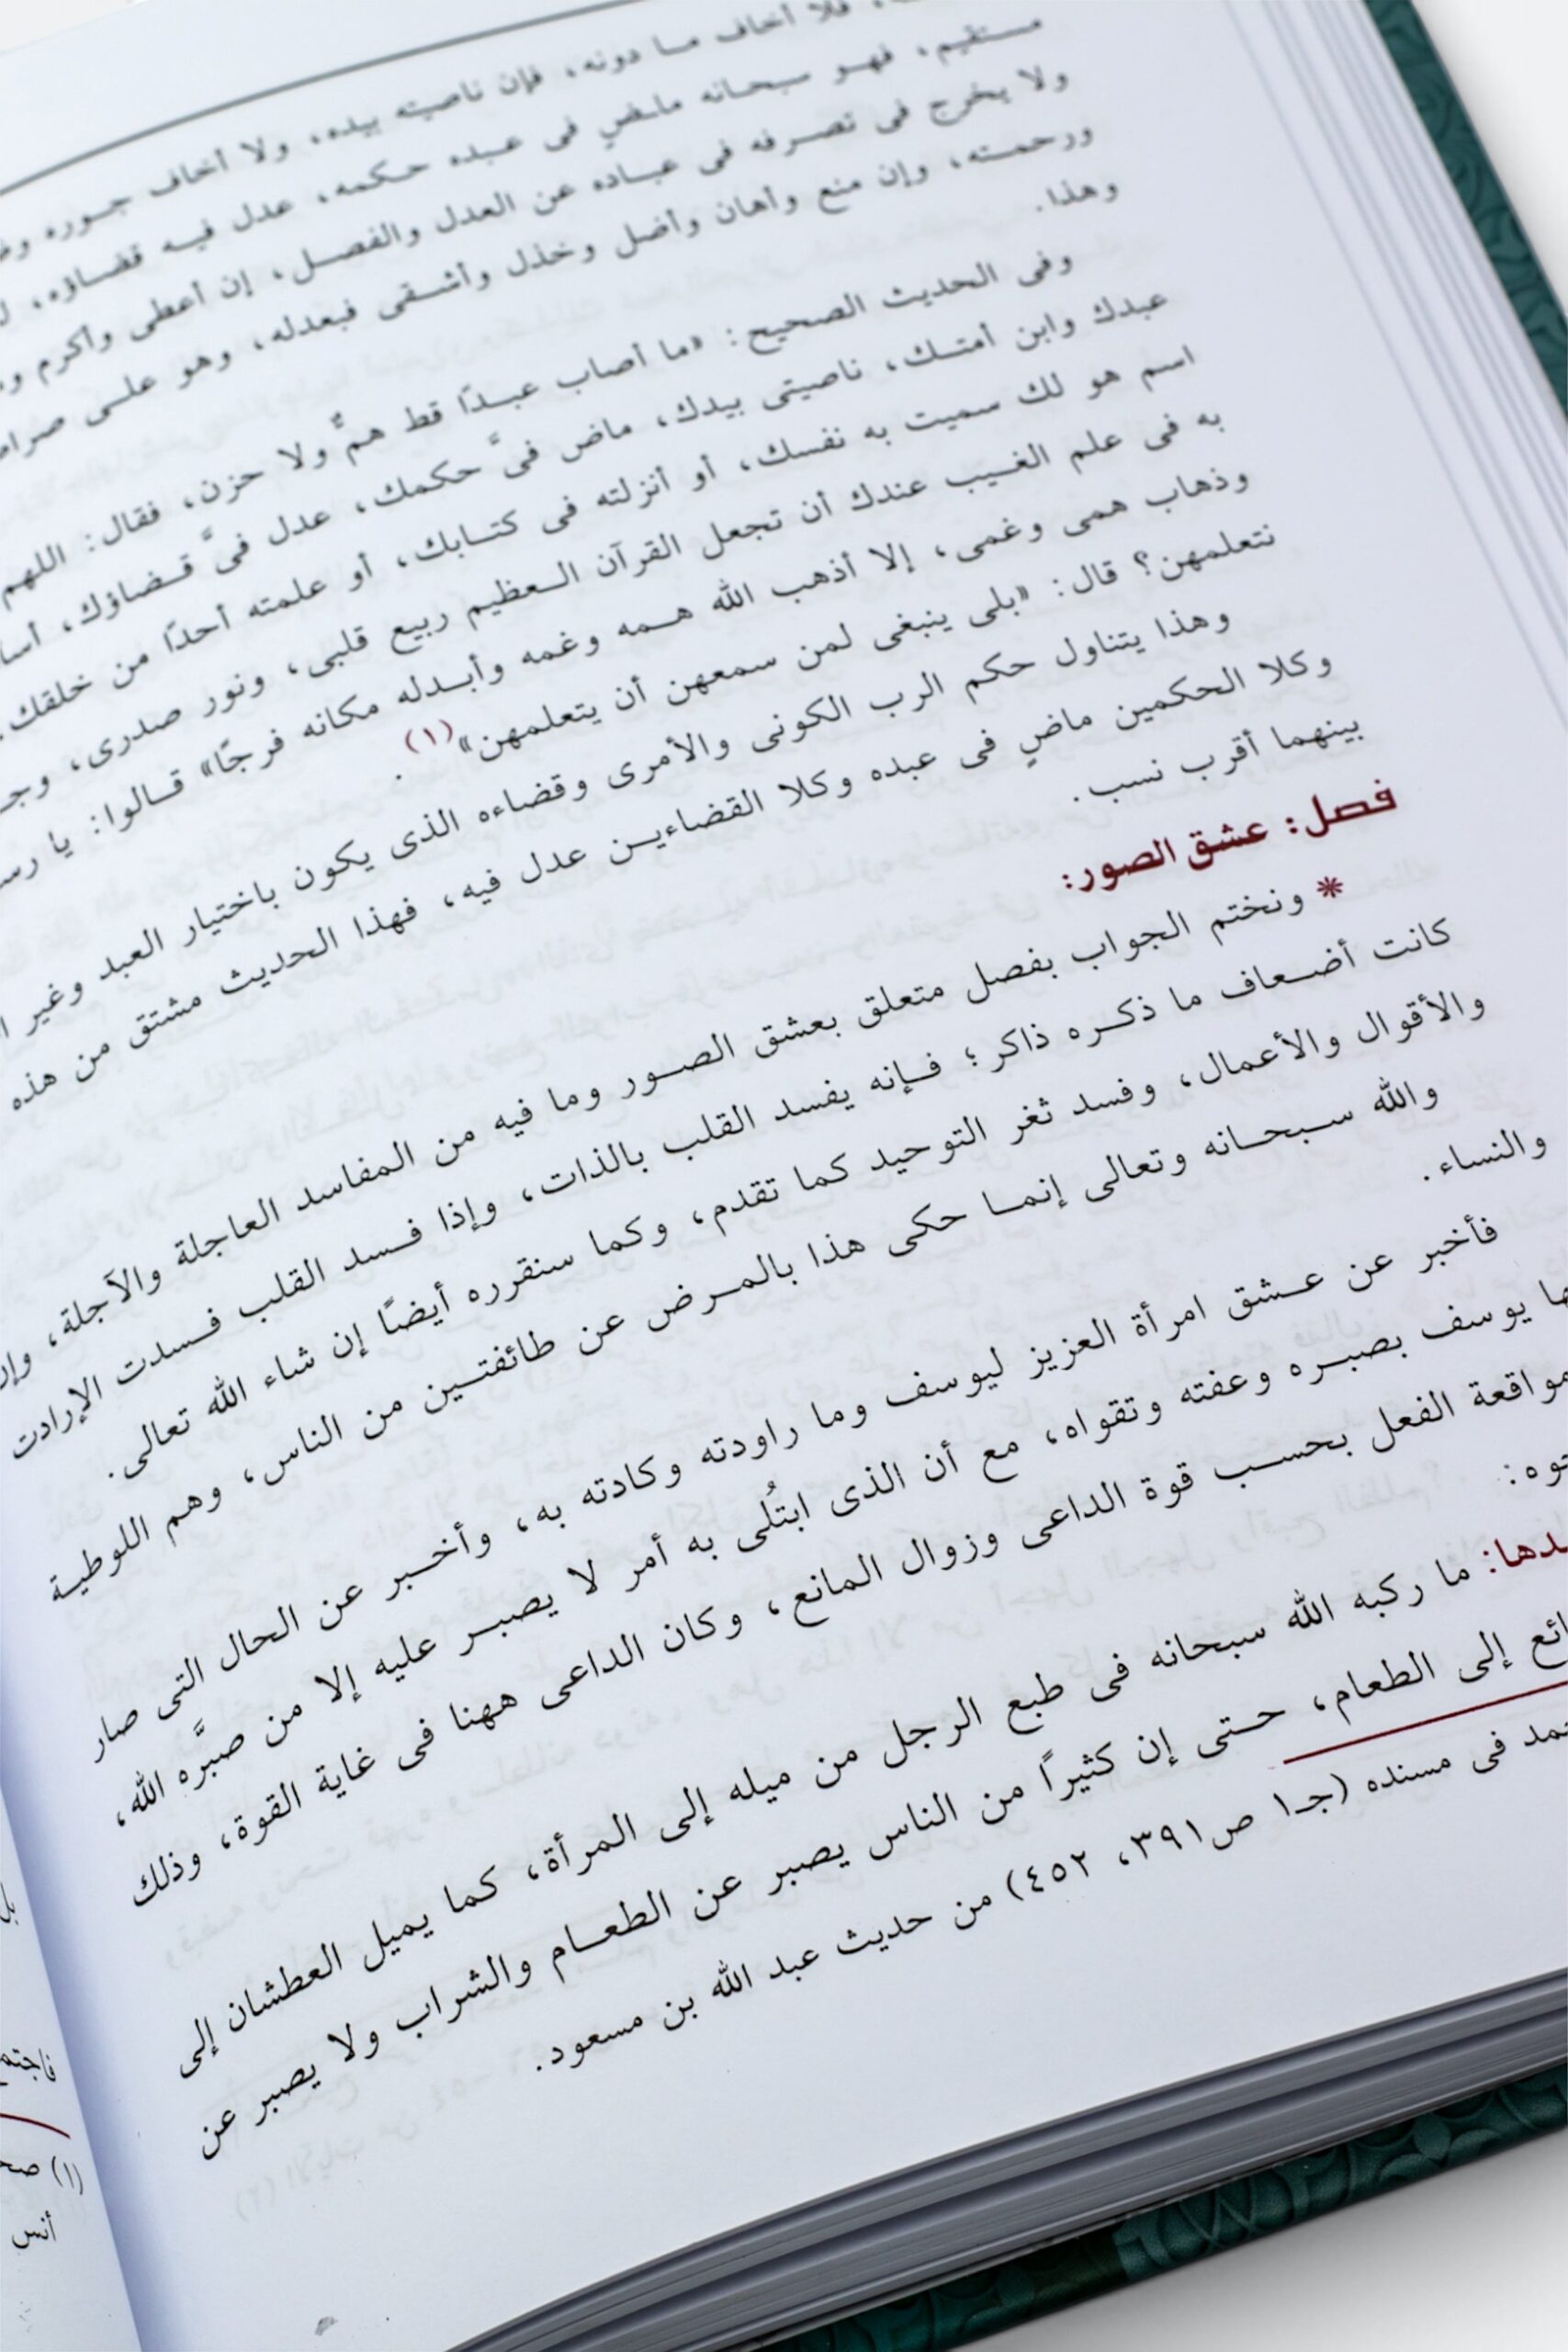 فلا أخاف ما دونه، فإن ناصيته بيده، ولا أخاف جوره
مستقيم، فهو سبحانه ماضٍ فى عبده حكمه، عدل فيه قضاؤه،
ولا يخرج فى تصرفه فى عباده عن العدل والفصل، إن أعطى وأكرم
ورحمته، وإن منع وأهان وأضل وخذل وأشقى فبعدله، وهو على
وهذا.
وفى الحديث الصحيح: «ما أصاب عبدًا قط همٌّ ولا حزن، فقال: اللهم
عبدك وابن أمتك، ناصيتى بيدك، ماض فىَّ حكمك، عدل فىَّ قضاؤك،
اسم هو لك سميت به نفسك، أو أنزلته فى كتابك، أو علمته أحدًا من خلقك
به فى علم الغيب عندك أن تجعل القرآن العظيم ربيع قلبى، ونور صدرى،
وذهاب همى وغمى، إلا أذهب الله همه وغمه وأبدله مكانه فرجًا» قالوا: يا
نتعلمهن؟ قال: «بلى ينبغى لمن سمعهن أن يتعلمهن»(١).
وهذا يتناول حكم الرب الكونى والأمرى وقضاءه الذى يكون باختيار العبد وغير
وكلا الحكمين ماضٍ فى عبده وكلا القضاءين عدل فيه، فهذا الحديث مشتق من هذه
بينهما أقرب نسب.
فصل: عشق الصور:
* ونختم الجواب بفصل متعلق بعشق الصور وما فيه من المفاسد العاجلة والآجلة، وإن
كانت أضعاف ما ذكره ذاكر؛ فإنه يفسد القلب بالذات، وإذا فسد القلب فسدت الإرادت
والأقوال والأعمال، وفسد ثغر التوحيد كما تقدم، وكما سنقرره أيضًا إن شاء الله تعالى.
والله سبحانه وتعالى إنما حكى هذا بالمرض عن طائفتين من الناس، وهم اللوطية
والنساء.
فأخبر عن عشق امرأة العزيز ليوسف وما راودته وكادته به، وأخبر عن الحال التى صار
يوسف بصبره وعفته وتقواه، مع أن الذى ابتُلى به أمر لا يصبر عليه إلا من صبَّره الله،
مواقعة الفعل بحسب قوة الداعى وزوال المانع، وكان الداعى ههنا فى غاية القوة، وذلك
ما ركبه الله سبحانه فى طبع الرجل من ميله إلى المرأة، كما يميل العطشان إلى
إلى الطعام، حتى إن كثيرًا من الناس يصبر عن الطعام والشراب ولا يصبر عن
فى مسنده (جـ١ ص٣٩١، ٤٥٢) من حديث عبد الله بن مسعود.
(١)
أنس